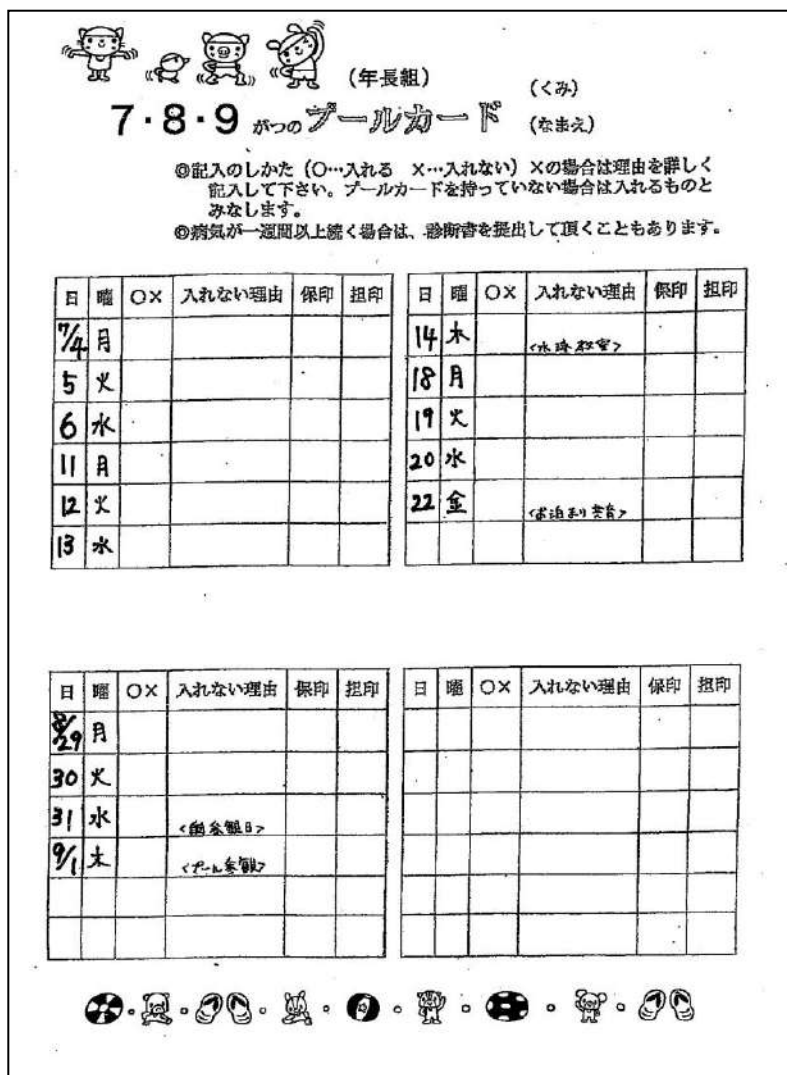 (年長組)
(くみ)
7・8・9 がつの プールカード
(なまえ)
◎記入のしかた (○…入れる ×…入れない) ×の場合は理由を詳しく
記入して下さい。プールカードを持っていない場合は入れるものと
みなします。
◎病気が一週間以上続く場合は、診断書を提出して頂くこともあります。
日 曜 ○× 入れない理由 保印 担印
7/4 月
5 火
6 水
11 月
12 火
13 水
日 曜 ○× 入れない理由 保印 担印
14 木 <水泳教室>
18 月
19 火
20 水
22 金 <お泊まり共育>
日 曜 ○× 入れない理由 保印 担印
8/29 月
30 火
31 水 参観日>
9/1 木 <プール参観>
日 曜 ○× 入れない理由 保印 担印